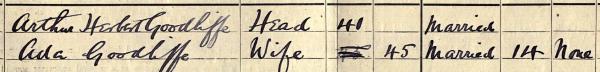 Arthur Herbert Goodliffe Head 40 Married
Ada Goodliffe Wife 45 Married 14 None